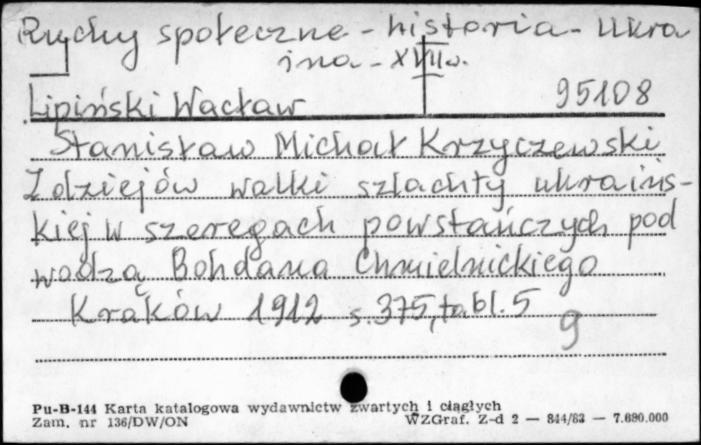 Ruchy społeczne - historia - Ukra
ina - XVII w.
Lipiński Wacław 95108
Stanisław Michał Krzyczewski
Z dziejów walki szlachty ukraińs-
kiej w szeregach powstańczych pod
wodzą Bohdana Chmielnickiego
Kraków 1912 s. 375, tabl. 5
9
Pu-B-144 Karta katalogowa wydawnictw zwartych i ciągłych
Zam. nr 136/DW/ON WZGraf. Z-d 2 — 844/63 — 7.680.000